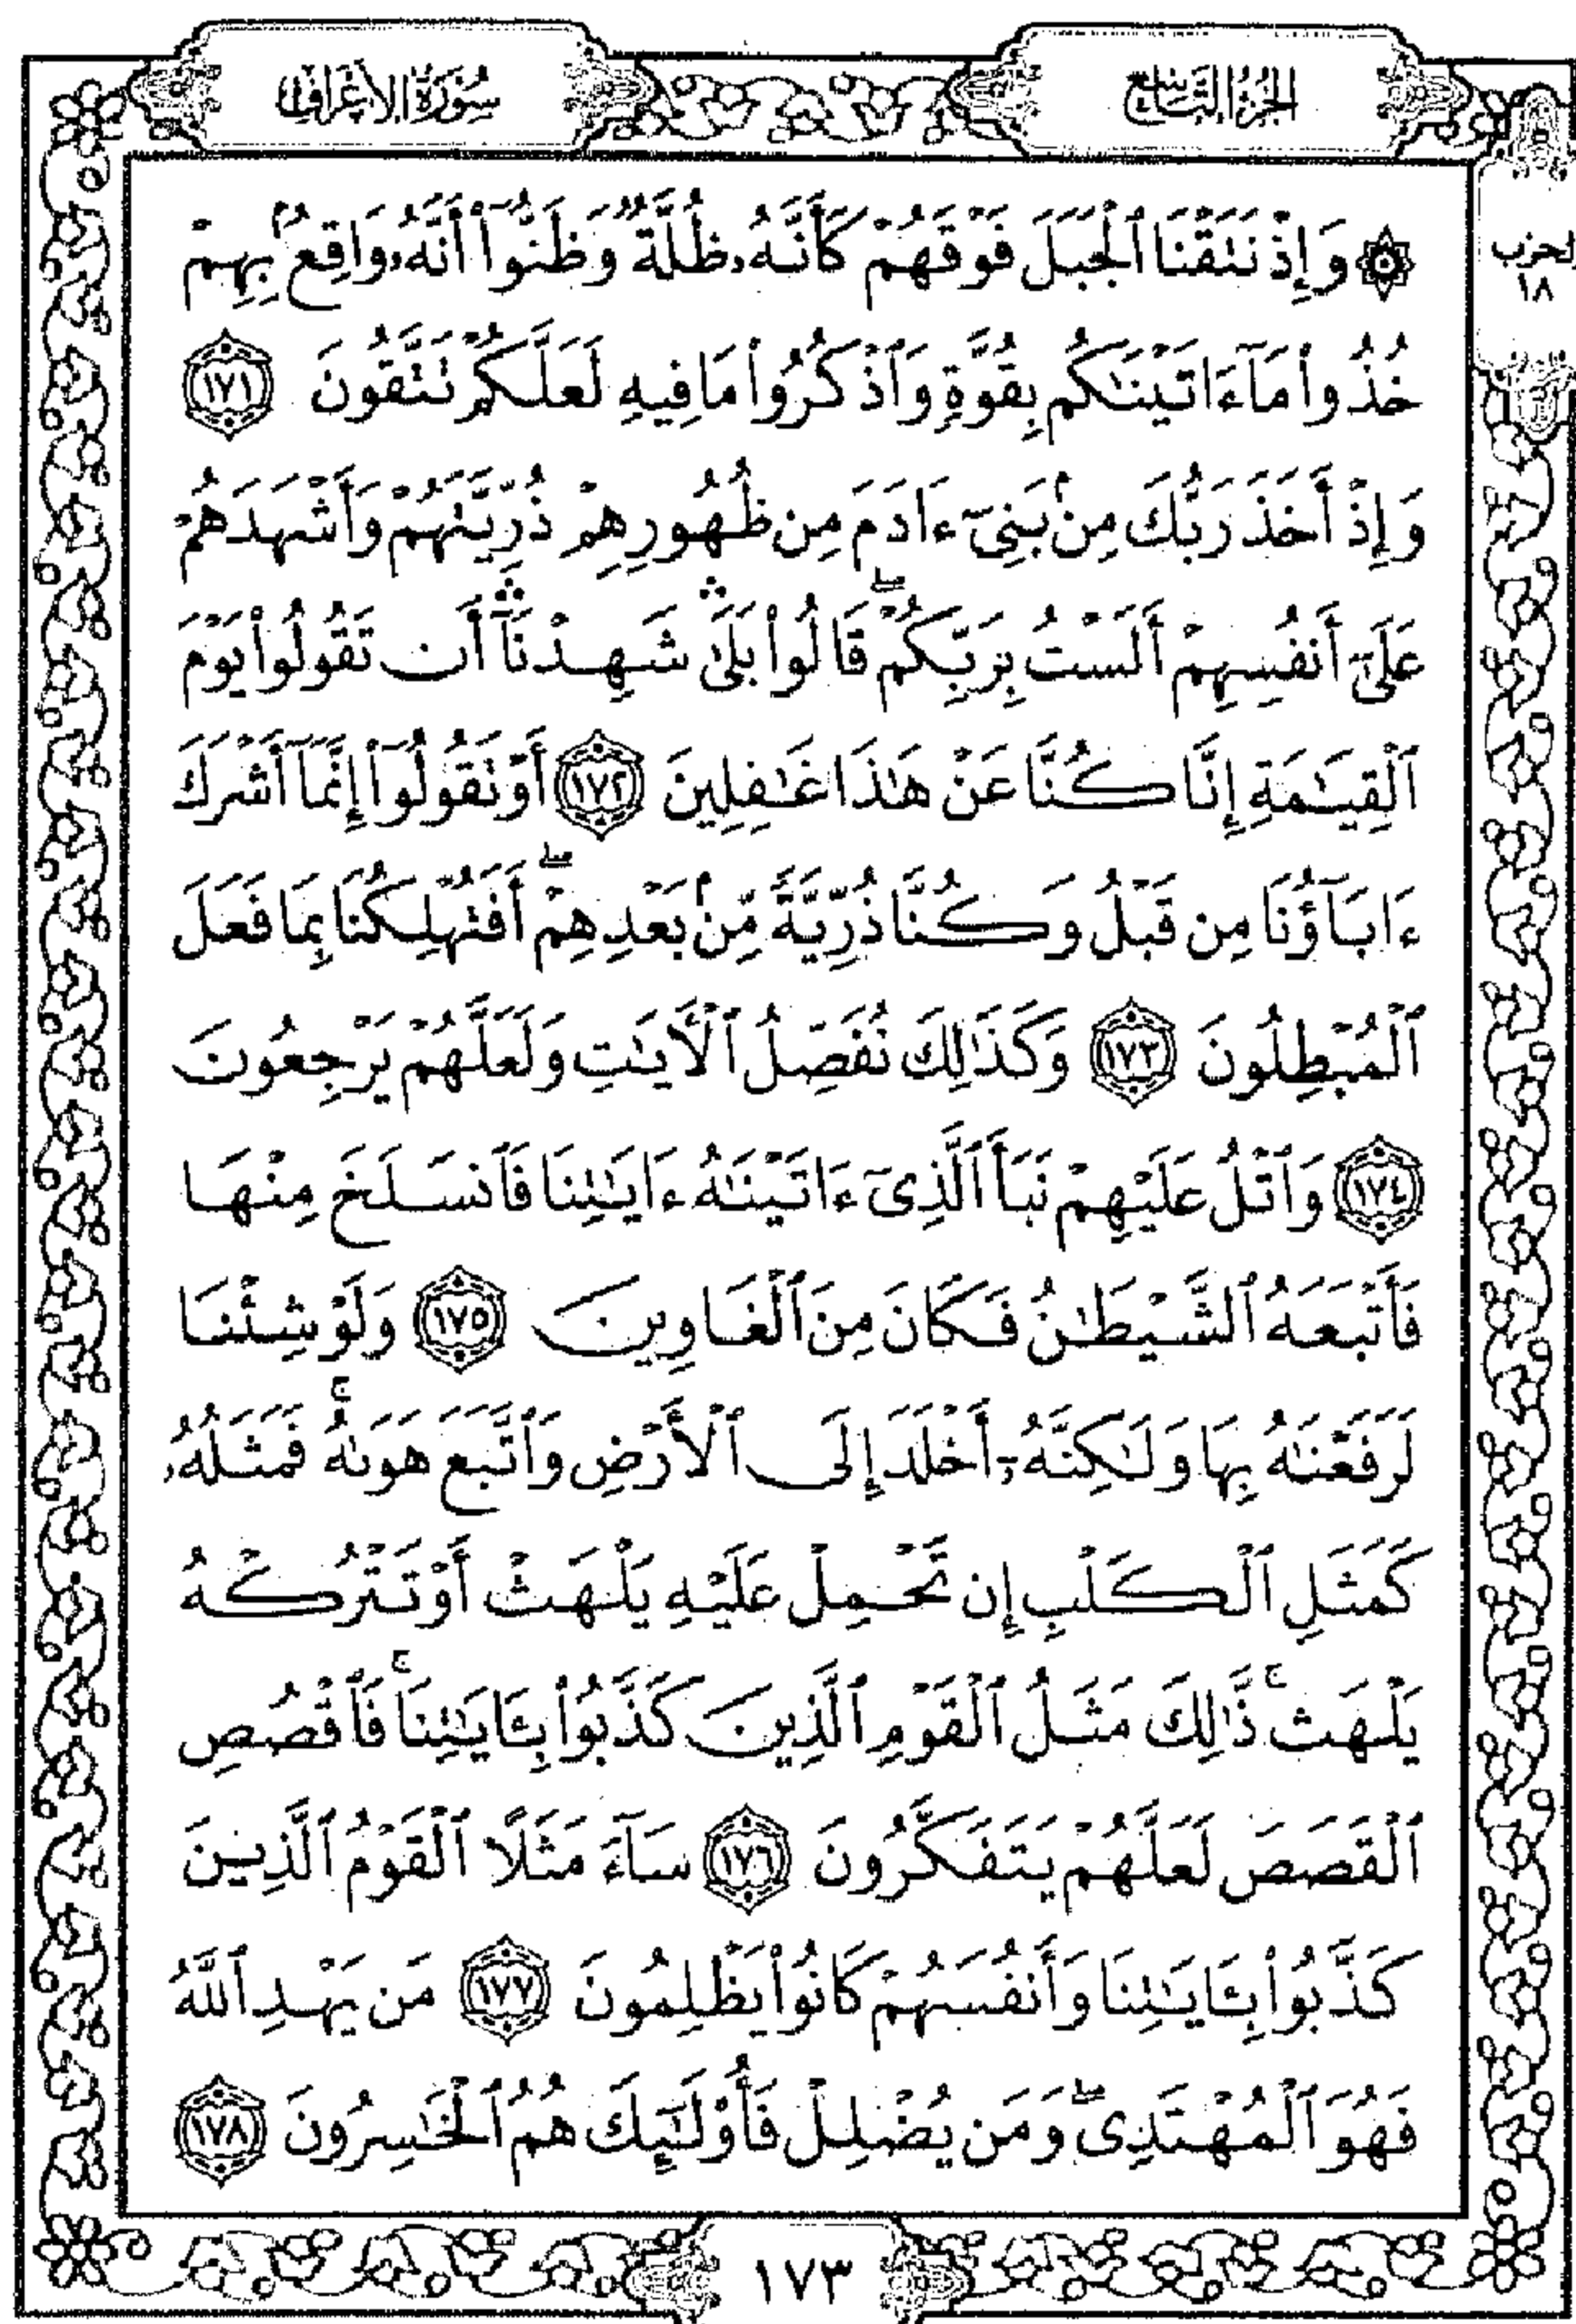 الجزء التاسع
سورة الأعراف
الحزب
١٨
۞ وَإِذْ نَتَقْنَا ٱلْجَبَلَ فَوْقَهُمْ كَأَنَّهُۥ ظُلَّةٌ وَظَنُّوٓا۟ أَنَّهُۥ وَاقِعٌۢ بِهِمْ
خُذُوا۟ مَآ ءَاتَيْنَٰكُم بِقُوَّةٍ وَٱذْكُرُوا۟ مَا فِيهِ لَعَلَّكُمْ تَتَّقُونَ ١٧١
وَإِذْ أَخَذَ رَبُّكَ مِنۢ بَنِىٓ ءَادَمَ مِن ظُهُورِهِمْ ذُرِّيَّتَهُمْ وَأَشْهَدَهُمْ
عَلَىٰٓ أَنفُسِهِمْ أَلَسْتُ بِرَبِّكُمْ ۖ قَالُوا۟ بَلَىٰ ۛ شَهِدْنَآ ۛ أَن تَقُولُوا۟ يَوْمَ
ٱلْقِيَٰمَةِ إِنَّا كُنَّا عَنْ هَٰذَا غَٰفِلِينَ ١٧٢ أَوْ تَقُولُوٓا۟ إِنَّمَآ أَشْرَكَ
ءَابَآؤُنَا مِن قَبْلُ وَكُنَّا ذُرِّيَّةً مِّنۢ بَعْدِهِمْ ۖ أَفَتُهْلِكُنَا بِمَا فَعَلَ
ٱلْمُبْطِلُونَ ١٧٣ وَكَذَٰلِكَ نُفَصِّلُ ٱلْءَايَٰتِ وَلَعَلَّهُمْ يَرْجِعُونَ
١٧٤ وَٱتْلُ عَلَيْهِمْ نَبَأَ ٱلَّذِىٓ ءَاتَيْنَٰهُ ءَايَٰتِنَا فَٱنسَلَخَ مِنْهَا
فَأَتْبَعَهُ ٱلشَّيْطَٰنُ فَكَانَ مِنَ ٱلْغَاوِينَ ١٧٥ وَلَوْ شِئْنَا
لَرَفَعْنَٰهُ بِهَا وَلَٰكِنَّهُۥٓ أَخْلَدَ إِلَى ٱلْأَرْضِ وَٱتَّبَعَ هَوَىٰهُ ۚ فَمَثَلُهُۥ
كَمَثَلِ ٱلْكَلْبِ إِن تَحْمِلْ عَلَيْهِ يَلْهَثْ أَوْ تَتْرُكْهُ
يَلْهَث ۚ ذَّٰلِكَ مَثَلُ ٱلْقَوْمِ ٱلَّذِينَ كَذَّبُوا۟ بِـَٔايَٰتِنَا ۚ فَٱقْصُصِ
ٱلْقَصَصَ لَعَلَّهُمْ يَتَفَكَّرُونَ ١٧٦ سَآءَ مَثَلًا ٱلْقَوْمُ ٱلَّذِينَ
كَذَّبُوا۟ بِـَٔايَٰتِنَا وَأَنفُسَهُمْ كَانُوا۟ يَظْلِمُونَ ١٧٧ مَن يَهْدِ ٱللَّهُ
فَهُوَ ٱلْمُهْتَدِى ۖ وَمَن يُضْلِلْ فَأُو۟لَٰٓئِكَ هُمُ ٱلْخَٰسِرُونَ ١٧٨
١٧٣